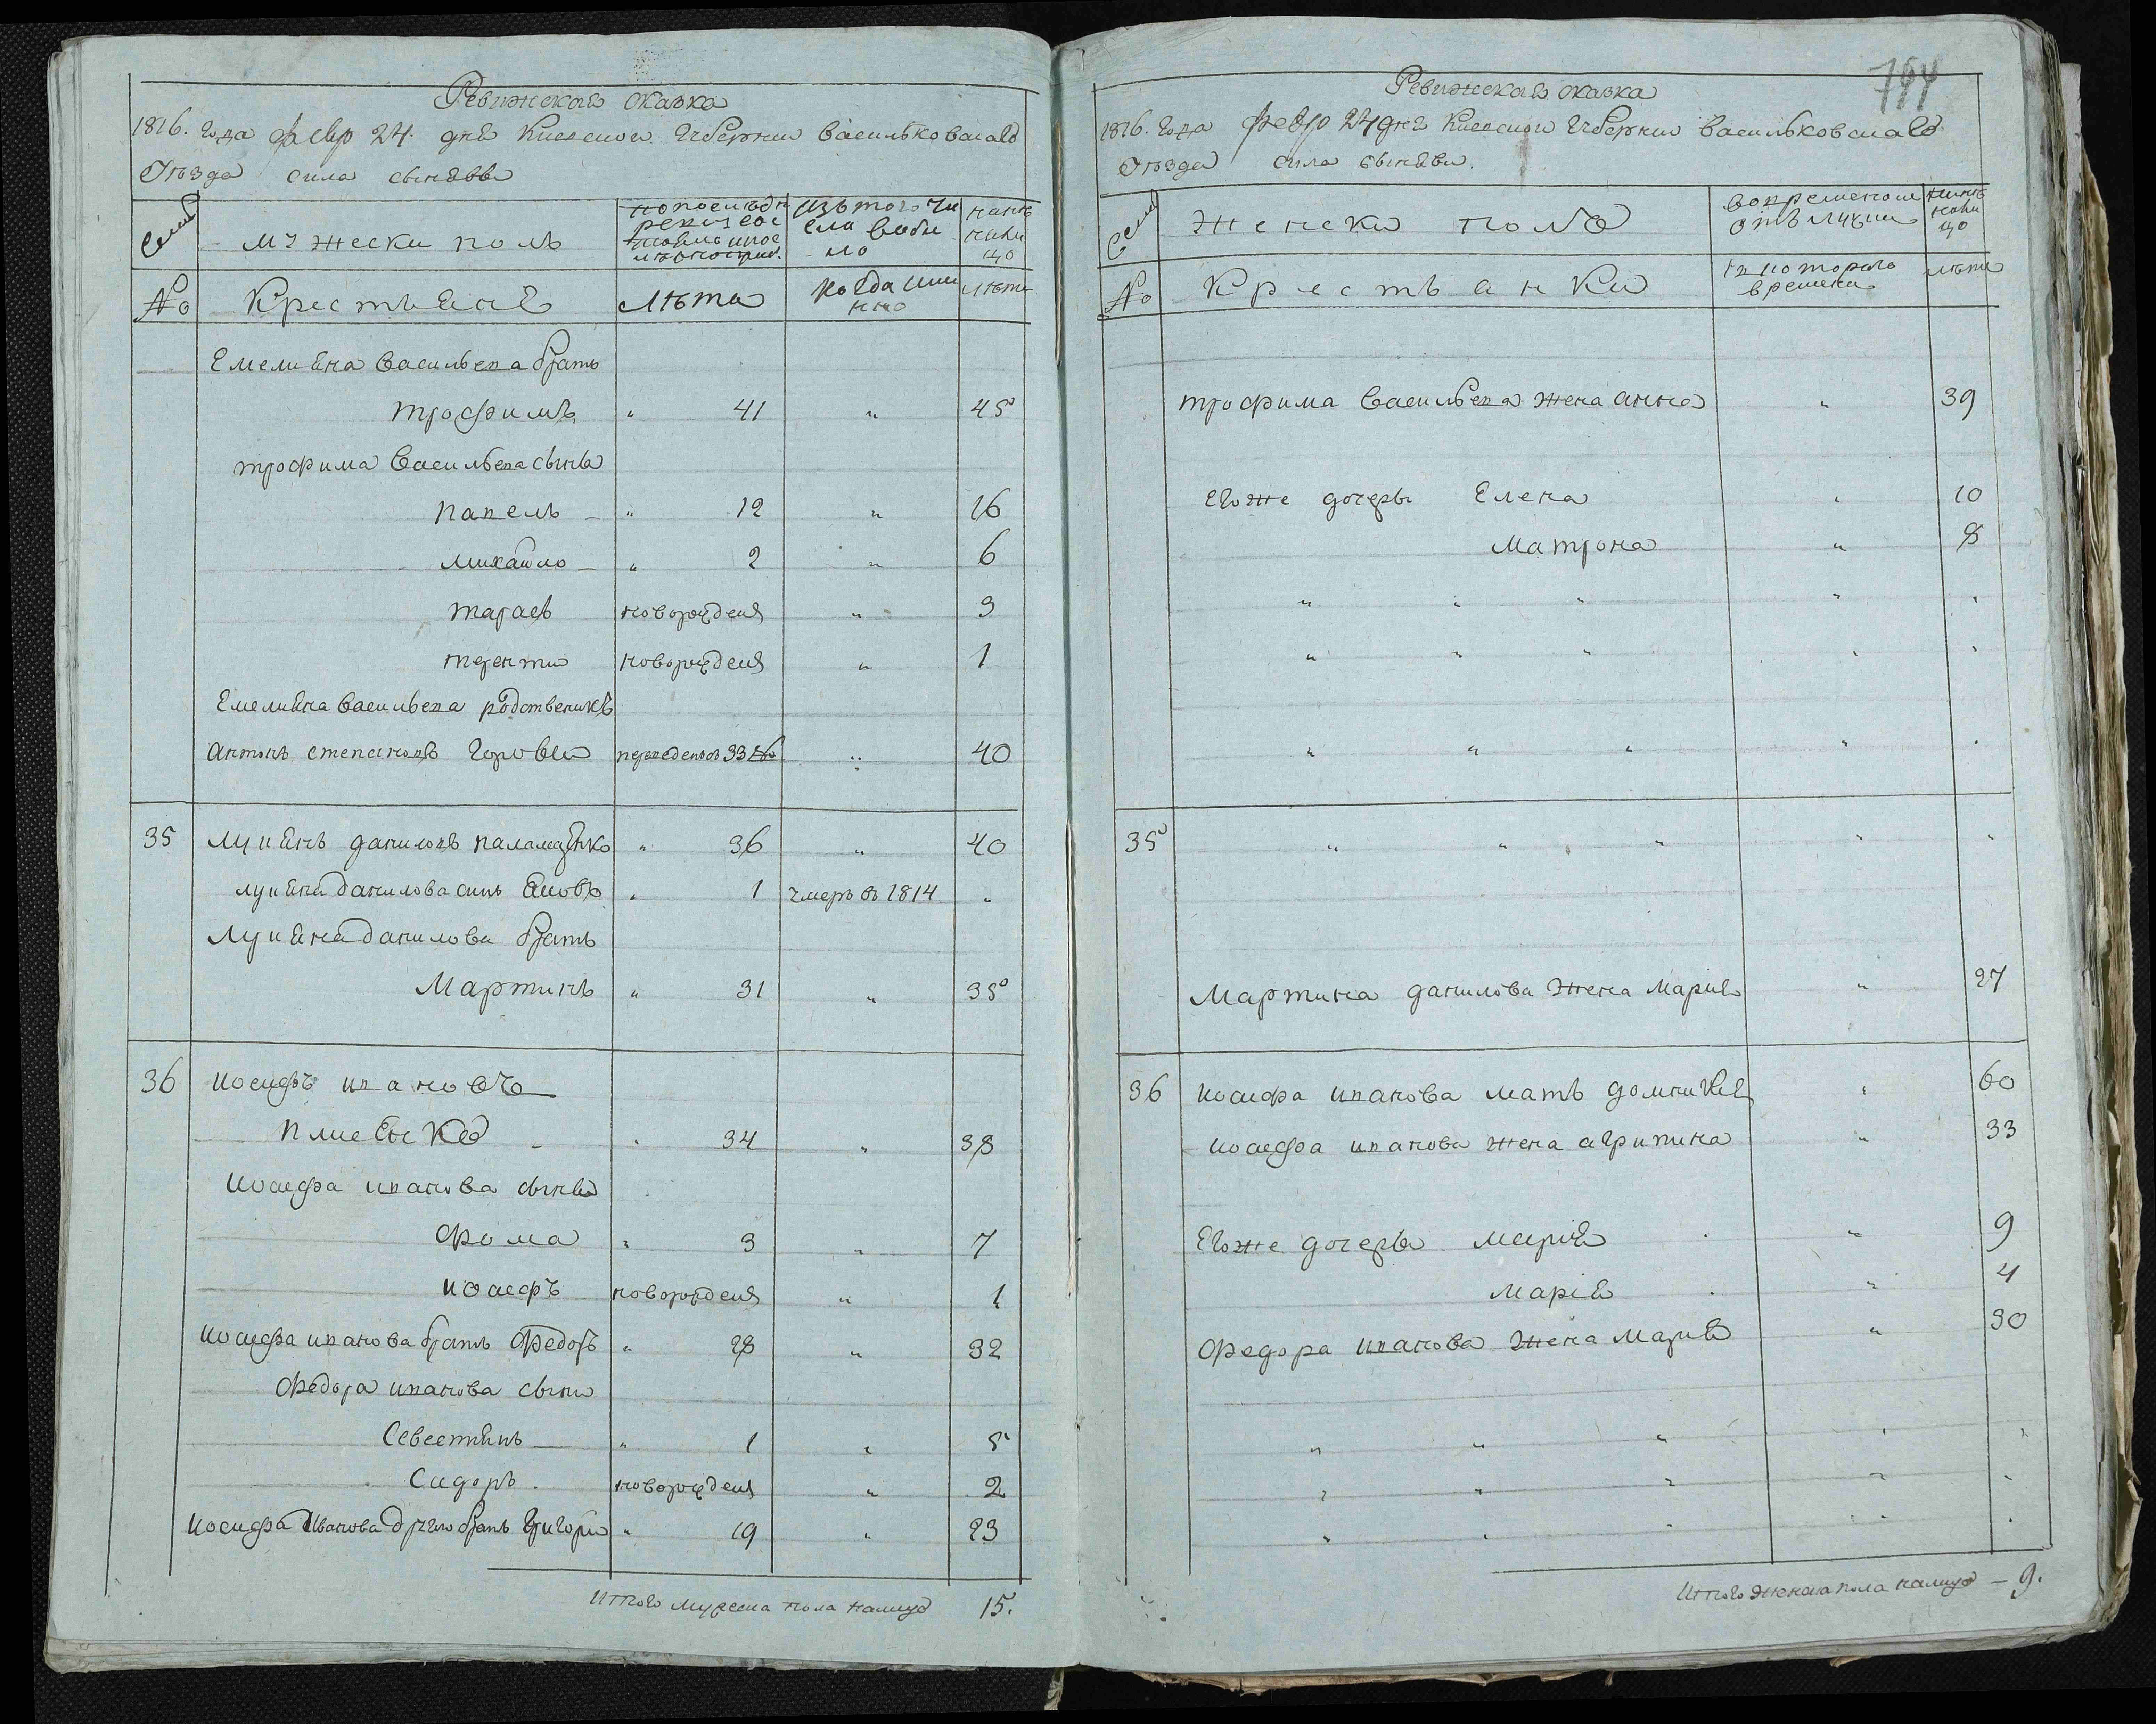 Ревижская сказка
1816. года февр 24. дня Киевской Губернии васильковскаго
Уезда села сынявы
Семьи
мужески полъ
попоследн ревизеи состояло и после
изъ того чи сла выбы ло
ныне нали цо
№
Крестьяне
Лѣта
когда имн но
лѣта
Емелияна Васильева братъ
трофимъ " 41 " 45
трофима Васильева сыны
павелъ " 12 " 16
михайло " 2 " 6
тарасъ новорожденя " 3
теренти новорожденя " 1
Емелияна васильева родственикъ
антонъ степановъ горовеи 40
35 лукянъ даниловъ паламаренко " 36 " 40
лукяна данилова синъ яковъ " 1 умеръ въ 1814 "
Лукяна данилова братъ
Мартинъ " 31 " 35
36 иосифъ ивановъ
" 34 " 38
иосифа иванова сыны
фома " 3 " 7
иосифъ новорожденя " 1
иосифа иванова братъ Федоръ " 28 " 32
Федора иванова сыны
Севестянъ " 1 " 5
Сидоръ новорожденя " 2
иосифа Иванова другио братъ Григори " 19 " 23
итого мужеска пола налицо 15.
744
Ревижская сказка
1816. года февр 24 дня Киевской Губернии васильковскаго
Уезда села сынявы.
Семьи
женски полъ
вовременои отълучки
нынѣ нали цо
№
Крестьянки
съ которого времени
лѣта
трофима Васильева жена анна " 39
Егоже дочеры Елена " 10
Матрона " 8
" " " " "
" " " " "
" " " " "
35 " " " " "
Мартина данилова жена Мария " 27
36 иосифа иванова мать домникия " 60
иосифа иванова жена агрипина " 33
Егоже дочеры Мария " 9
Марія " 4
Федора иванова жена Мария " 30
" " " " "
" " " " "
" " " " "
Итого женска пола налицо — 9.